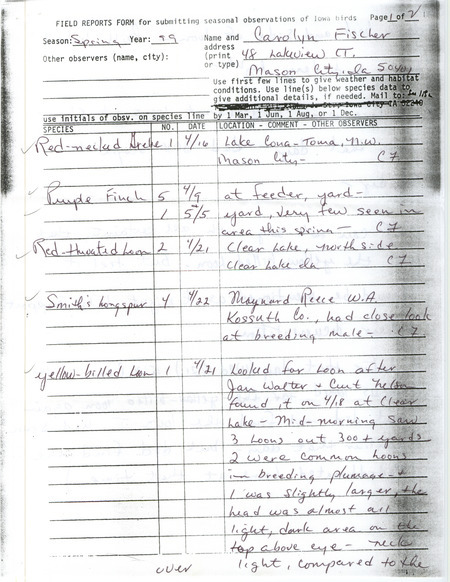 FIELD REPORTS FORM for submitting seasonal observations of Iowa birds Page 1 of 2
Season: Spring Year: 99 Name and Carolyn Fischer
Other observers (name, city): address
(print 48 Lakeview CT.
or type) Mason City, Ia
Use first few lines to give weather and habitat
conditions. Use line(s) below species data to
give additional details, if needed. Mail to:
use initials of obsv. on species line by 1 Mar, 1 Jun, 1 Aug, or 1 Dec.
SPECIES NO. DATE LOCATION - COMMENT - OTHER OBSERVERS
Red-necked Grebe 1 4/16 Lake Cona-Toma, N.W.
Mason City - CF
Purple Finch 5 4/9 at feeder, yard -
1 5/5 yard, very few seen in
area this spring - CF
Red-throated Loon 2 4/21 Clear Lake, north side
Clear Lake Ia CF
Smith's Longspur 4 4/22 Maynard Reece W.A.
Kossuth Co., had close look
at breeding male - CF
yellow-billed Loon 1 4/21 Looked for Loon after
Jan Walter + Curt Nelson
found it on 4/18 at Clear
Lake - Mid-morning saw
3 Loons out 300+ yards
2 were common Loons
in breeding plumage -
1 was slightly larger, the
head was almost all
light, dark area on the
top above eye - neck
over light, compared to the